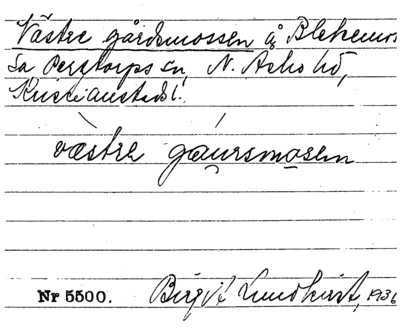 Västre gårdsmossen å Blekemos
sa Perstorps sn, N. Åsbo hd,
Kristianstads l.
væstre gau̯rsmosen
Nr 5500. Birgit Lundkvist, 1936